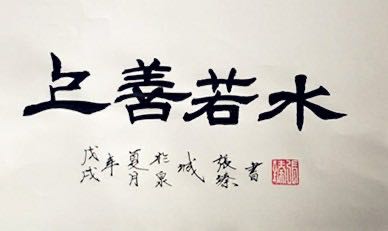 上善若水
戊戌年夏月於泉城張臻書